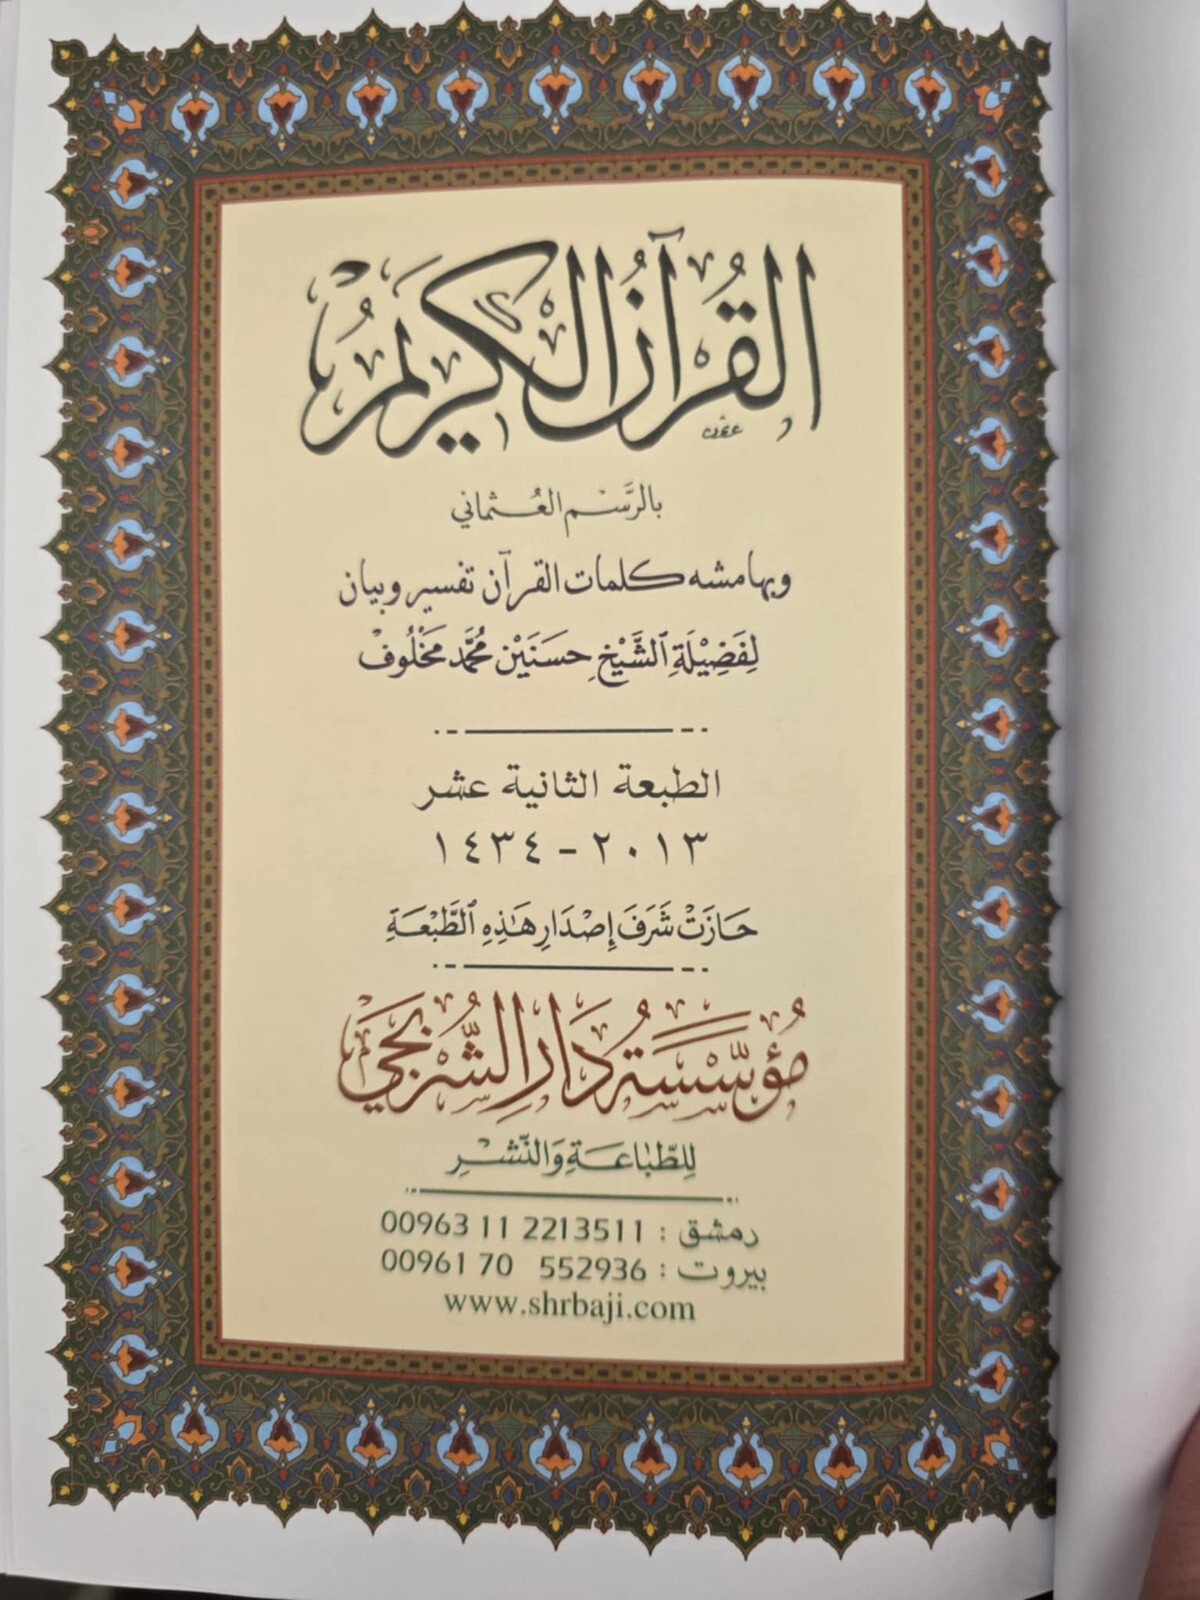 القُرآنُ الكَرِيمُ
بِالرَّسْمِ العُثمَاني
وبهامشه كلمات القرآن تفسير وبيان
لِفَضِيْلَةِ الشَّيْخِ حَسَنَيْن مُحَمَّد مَخْلُوفْ
الطبعة الثانية عشر
٢٠١٣ - ١٤٣٤
حَازَتْ شَرَفَ إِصْدَارِ هَٰذِهِ الطَّبْعَةِ
مُؤسَّسَةُ دَارِ الشُّرْبَجِيّ
لِلطِّبَاعَةِ وَالنَّشْرِ
دمشق : 00963 11 2213511
بيروت : 00961 70 552936
www.shrbaji.com